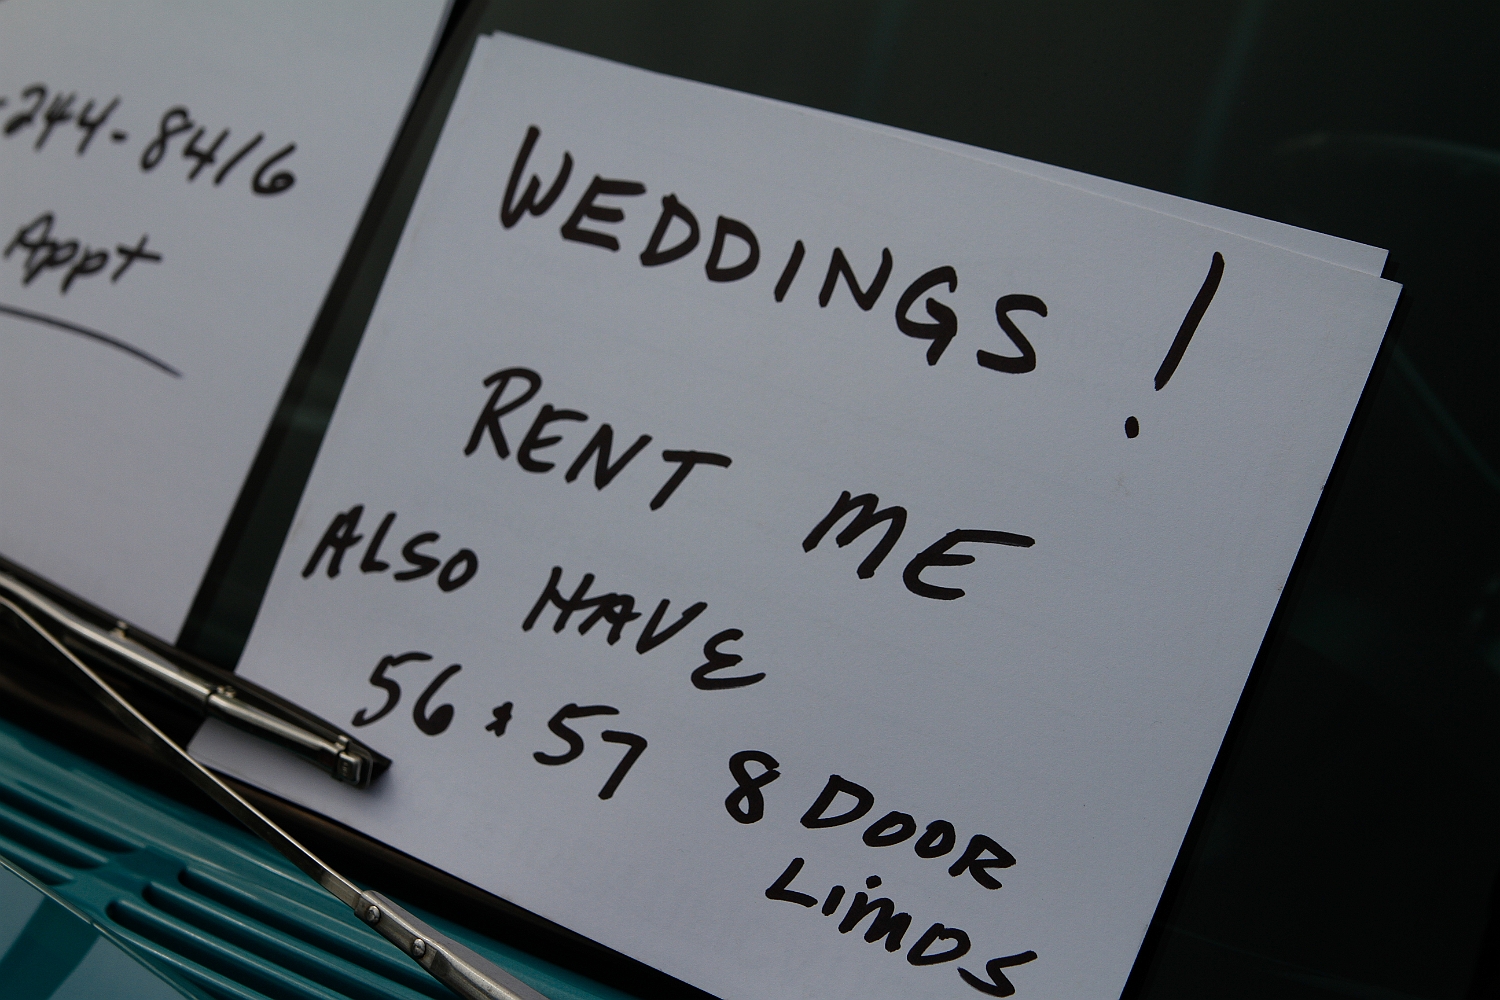 -244-8416
Appt
WEDDINGS !
RENT ME
ALSO HAVE
56 & 57 8 DOOR
LIMOS